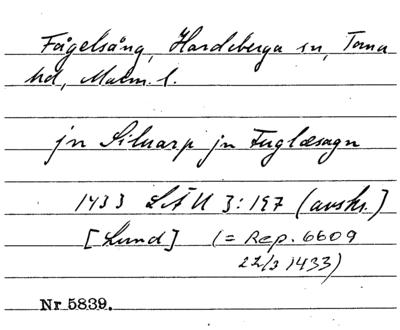 Fågelsång, Hardeberga sn, Torna
hd, Malm. l.
jn Siluarp jn Fuglæsagn
1433 LÄU 3:197 (avskr.)
[Lund] (= Rep. 6609
22/3 1433)
Nr 5839.